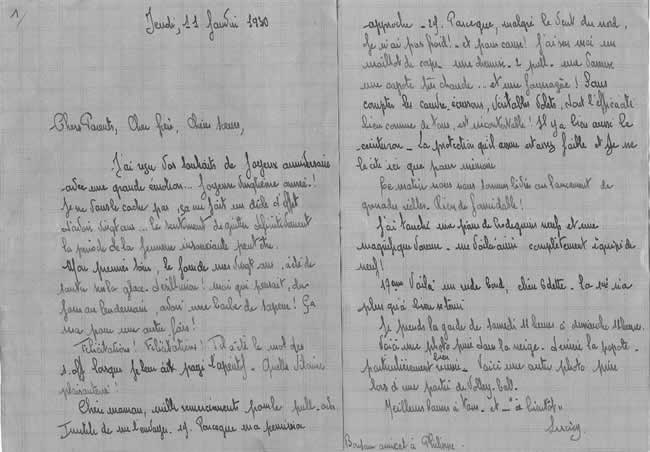 1/
Jeudi, 11 Janvier 1930
Chers Parents, Cher frère, Chère soeur,
J'ai reçu vos souhaits de joyeux anniversaire
avec une grande émotion... Joyeux vingtième année!
Je ne vous le cache pas, ça me fait un drôle d'effet
d'avoir vingt ans... le sentiment de quitter définitivement
la période de la jeunesse insouciante peut-être.
Mon premier soin, le jour de mes vingt ans, a été de
sauter sur la glace. Désillusion! moi qui pensait, du
jour au lendemain, avoir une barbe de sapeur! Ça
sera pour une autre fois!
Félicitations! Félicitations! Tel a été le mot des
s.off lorsque je leur ait payé l'apéritif. Quelle
plaisanterie!
Chère maman, mille remerciements pour le pull-
Inutile de me l'envoyer. M. Pourcque ma permission
approche - M. Parceque, malgré le vent du nord,
je n'ai pas froid! et pour cause! J'ai sur moi un
maillot de corps - une chemise - 2 pull - une vareuse
une capote très chaude... et une
compter les cache- véritables dont l'efficacité
bien connue de tous, est incontestable! Il y a bien aussi le
ceinturon - La protection qu'il assure est assez faible et je ne
le cite ici que pour mémoire
Ce matin nous nous sommes livrés au lancement de
grenades réelles. Rien de formidable!
J'ai touché une paire de brodequins neufs et une
magnifique vareuse - me voilà ainsi complètement équipé de
neuf!
Voilà un rude bond, chère Odette - la 1ère n'a
plus qu'à bien se tenir
Je prends la garde de samedi 11 heures à dimanche 11 heures.
Voici une photo prise dans la neige - derrière la popote -
particulièrement réussie - Voici une autre photo prise
lors d'une partie de Volley-ball.
Meilleurs baisers à tous - et - "à bientôt"
Bonjour amical à Philippe